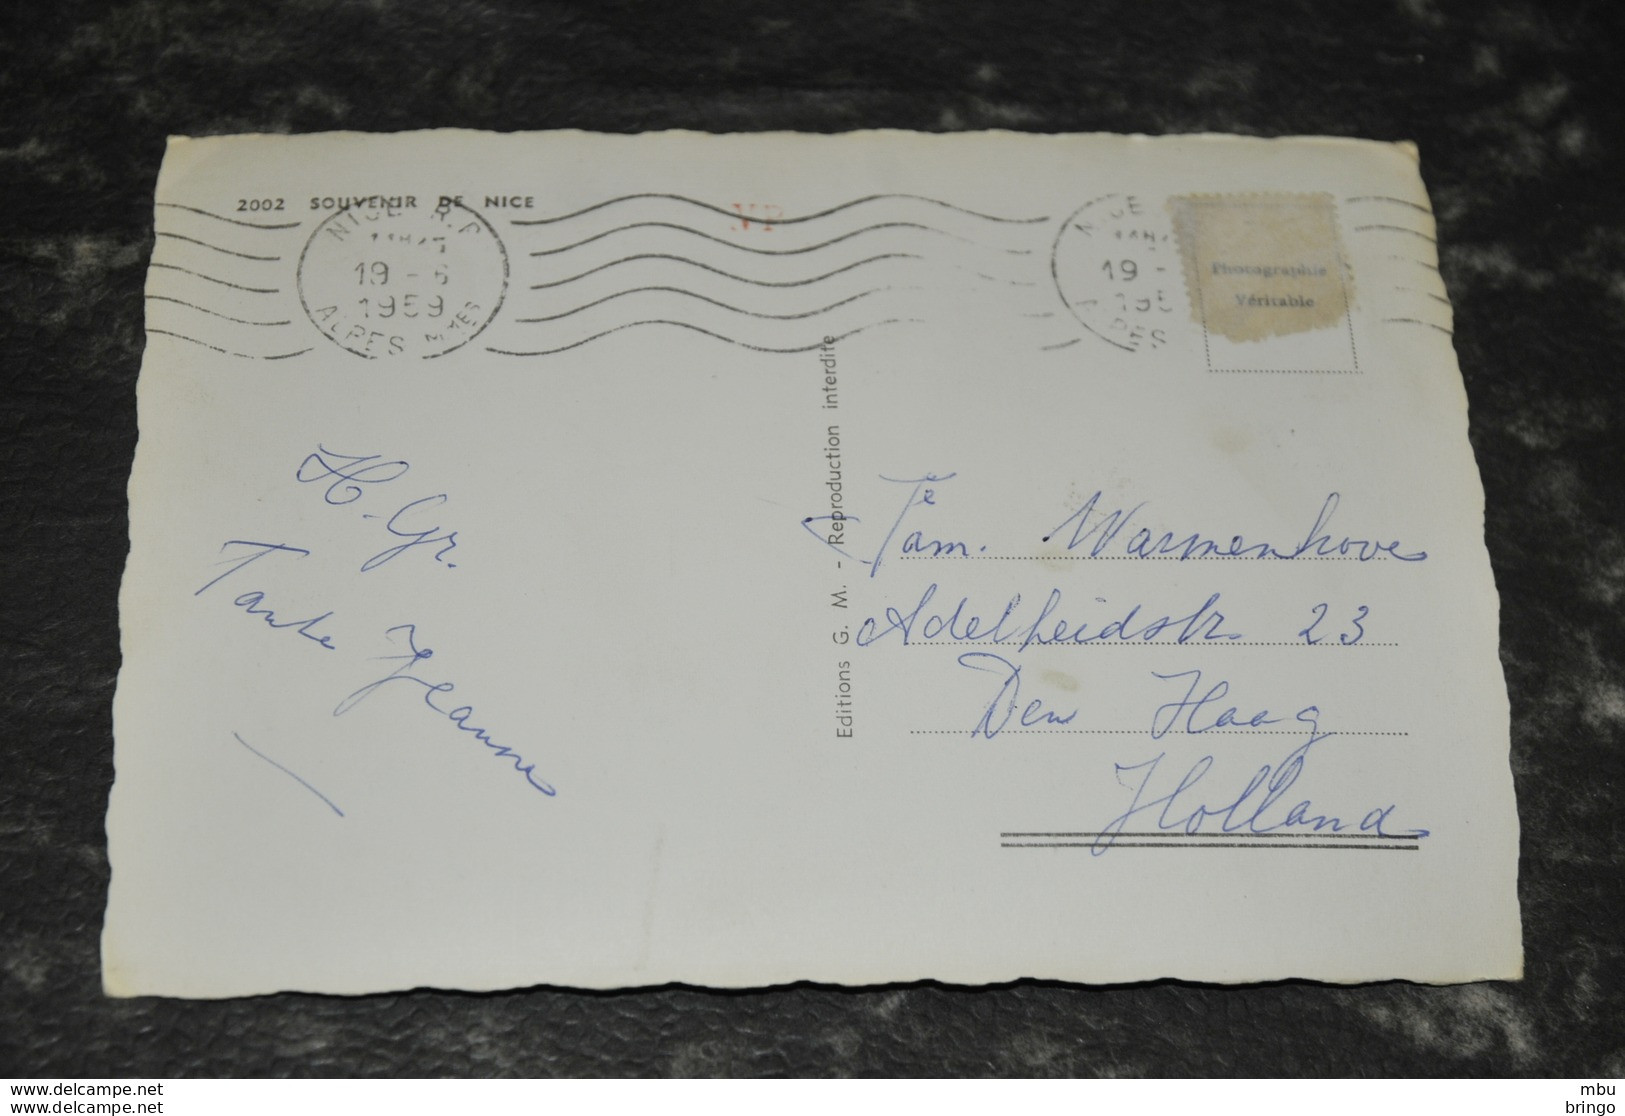 2002 SOUVENIR DE NICE
NICE R.P.
19 - 6
1959
ALPES MMES
NICE
19 -
195
Photographie
Véritable
Editions G. M. - Reproduction interdite
H. Gr.
Tante Jeanne
Fam. Warmenhove
Adelheidstr. 23
Den Haag
Holland
www.delcampe.net
www.delcampe.net
mbu
bringo